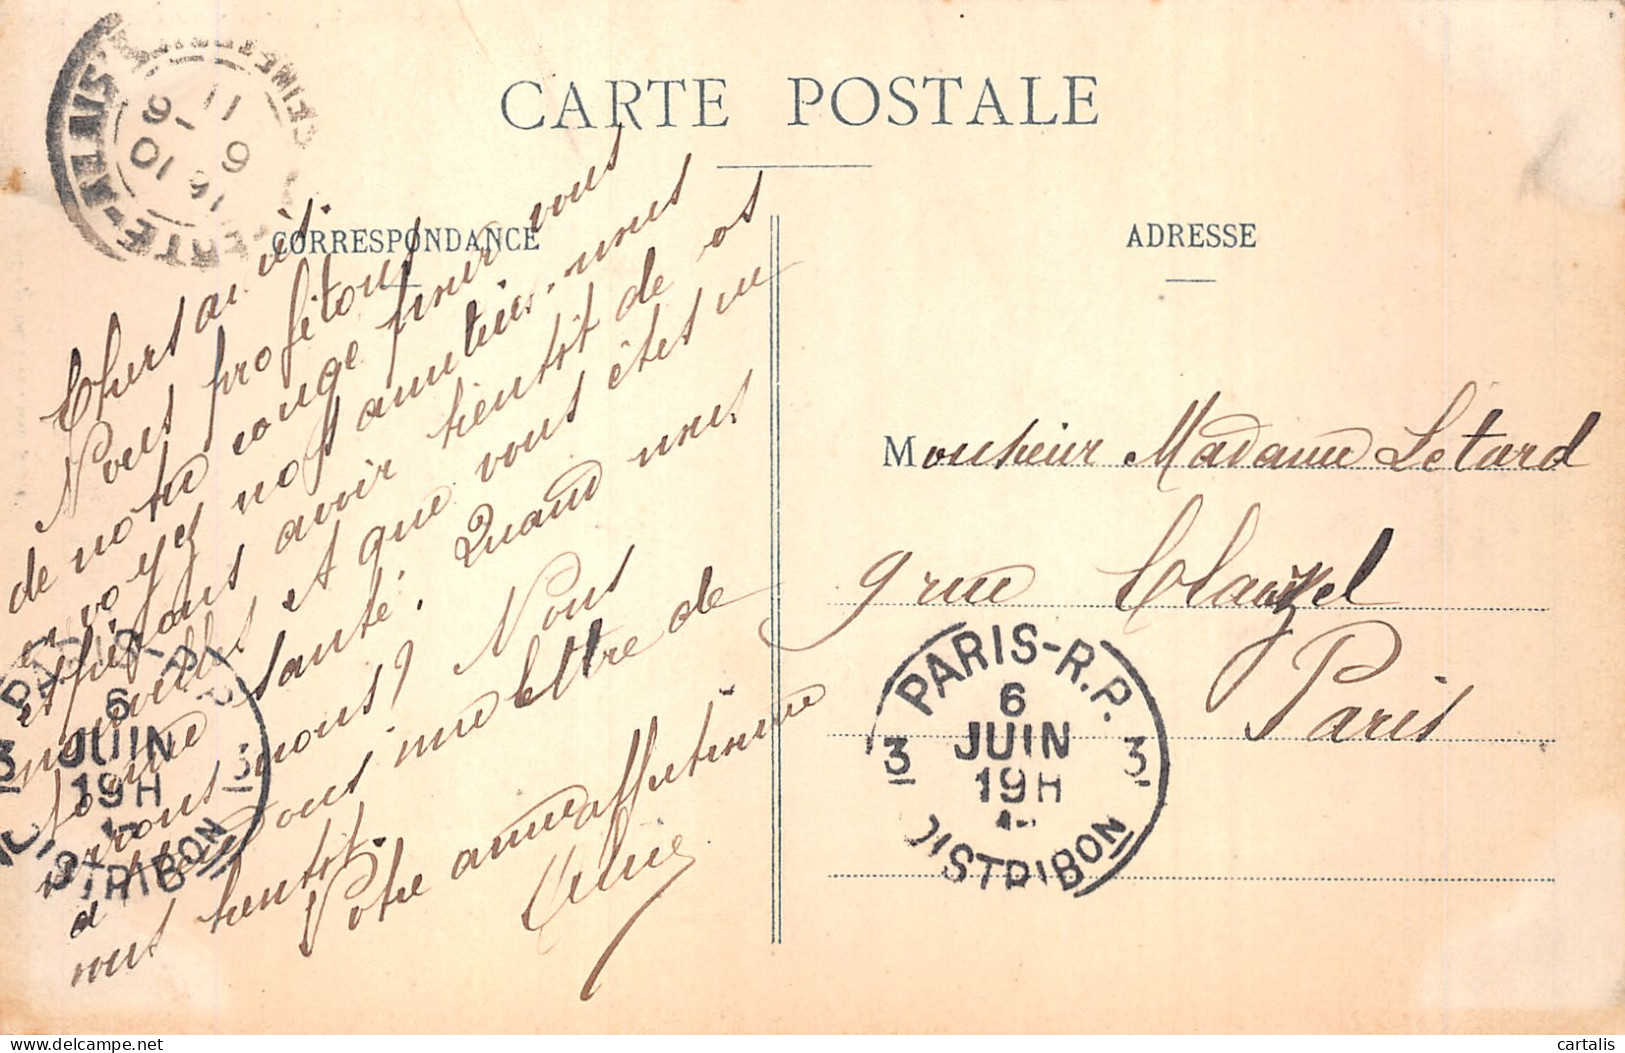 CARTE POSTALE
CORRESPONDANCE
ADRESSE
Chers amis.
Nous profitons
de notre congé pour vous
envoyez nos amitiés. nous
espérons avoir bientôt de vos
nouvelles et que vous êtes en
bonne santé. Quand nous
verrons nous? Nous
vous
bientôt. lettre de
Votre amie affectionnée
Monsieur Madame Letard
9 rue Clauzel
Paris
PARIS-R.P.
6
JUIN
19H
3 3
DISTRIBON
PARIS-R.P.
6
JUIN
19H
3 3
DISTRIBON
11
6
10